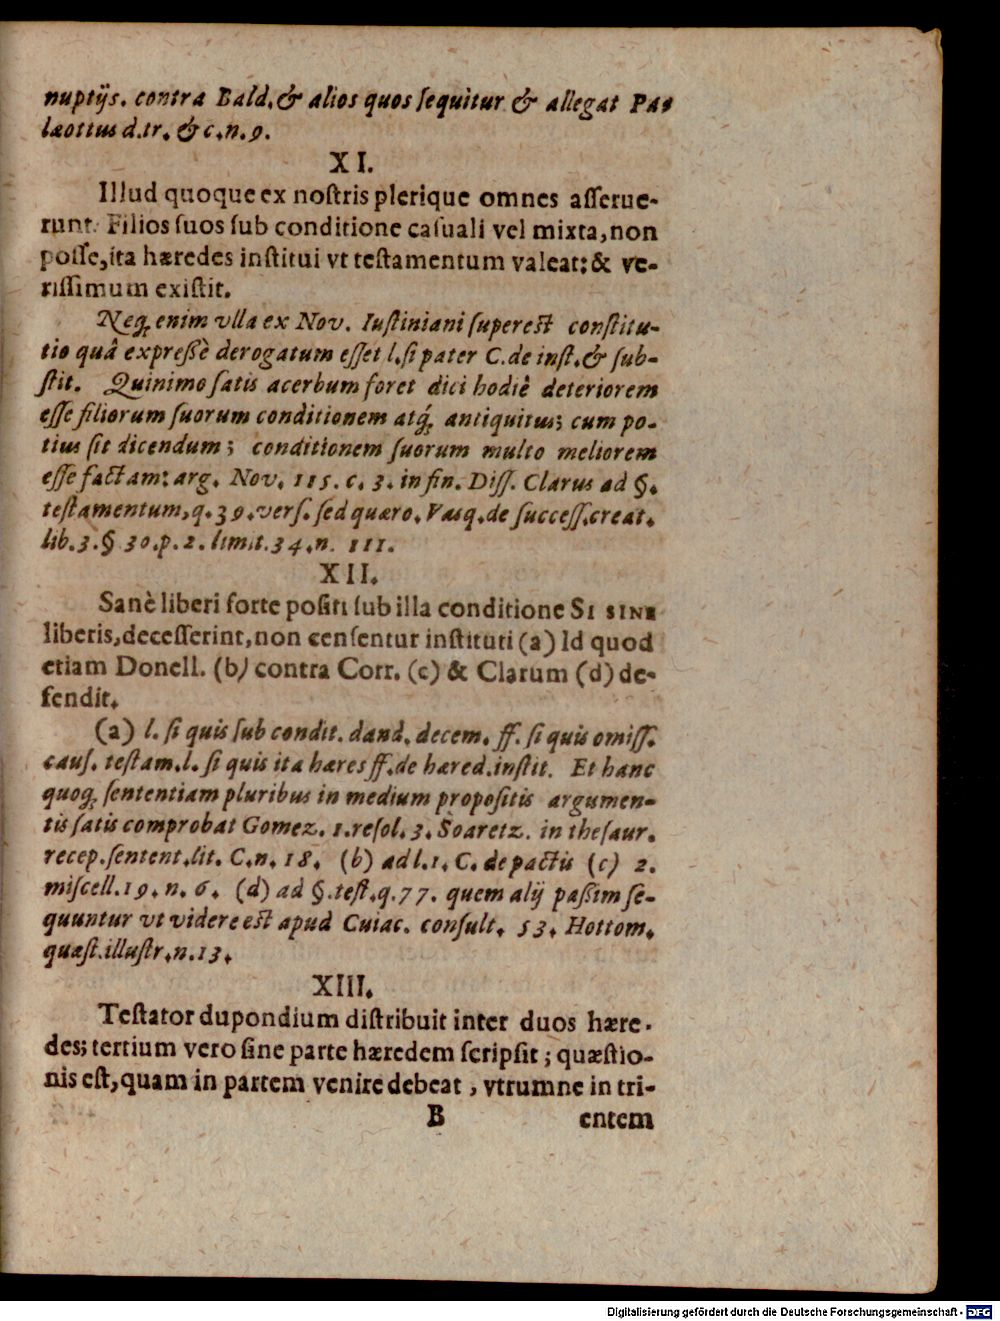 nuptijs. contra Bald. & alios quos ſequitur & allegat Pa-
læottus d.tr. & c.n.9.
XI.
Illud quoque ex noſtris plerique omnes aſſerue-
runt. Filios ſuos ſub conditione caſuali vel mixta, non
poſſe, ita hæredes inſtitui vt teſtamentum valeat: & ve-
riſſimum exiſtit.
Neq; enim vlla ex Nov. Iuſtiniani ſupereſt conſtitu-
tio quâ expreſſè derogatum eſſet l. ſi pater C. de inſt. & ſub-
ſtit. Quinimo ſatis acerbum foret dici hodiè deteriorem
eſſe filiorum ſuorum conditionem atq; antiquitus; cum po-
tius ſit dicendum; conditionem ſuorum multo meliorem
eſſe factam: arg. Nov. 115. c. 3. in fin. Diſſ. Clarus ad §.
teſtamentum, q. 39. verſ. ſed quæro. Vaſq. de ſucceſſ. creat.
lib. 3. § 30. p. 2. limit. 34. n. 111.
XII.
Sanè liberi forte poſiti ſub illa conditione SI SINE
liberis, deceſſerint, non cenſentur inſtituti (a) Id quod
etiam Donell. (b) contra Corr. (c) & Clarum (d) de-
fendit.
(a) l. ſi quis ſub condit. dand. decem. ff. ſi quis omiſſ.
cauſ. teſtam. l. ſi quis ita hæres ff. de hæred. inſtit. Et hanc
quoq; ſententiam pluribus in medium propoſitis argumen-
tis ſatis comprobat Gomez. 1. reſol. 3. Soaretz. in theſaur.
recep. ſentent. lit. C. n. 18. (b) ad l. 1. C. de pactis (c) 2.
miſcell. 19. n. 6. (d) ad §. teſt. q. 77. quem alij paſſim ſe-
quuntur vt videre eſt apud Cuiac. conſult. 53. Hottom.
quæſt. illuſtr. n. 13.
XIII.
Teſtator dupondium diſtribuit inter duos hære-
des; tertium vero ſine parte hæredem ſcripſit; quæſtio-
nis eſt, quam in partem venire debeat, vtrumne in tri-
B entem
Digitalisierung gefördert durch die Deutsche Forschungsgemeinschaft - DFG